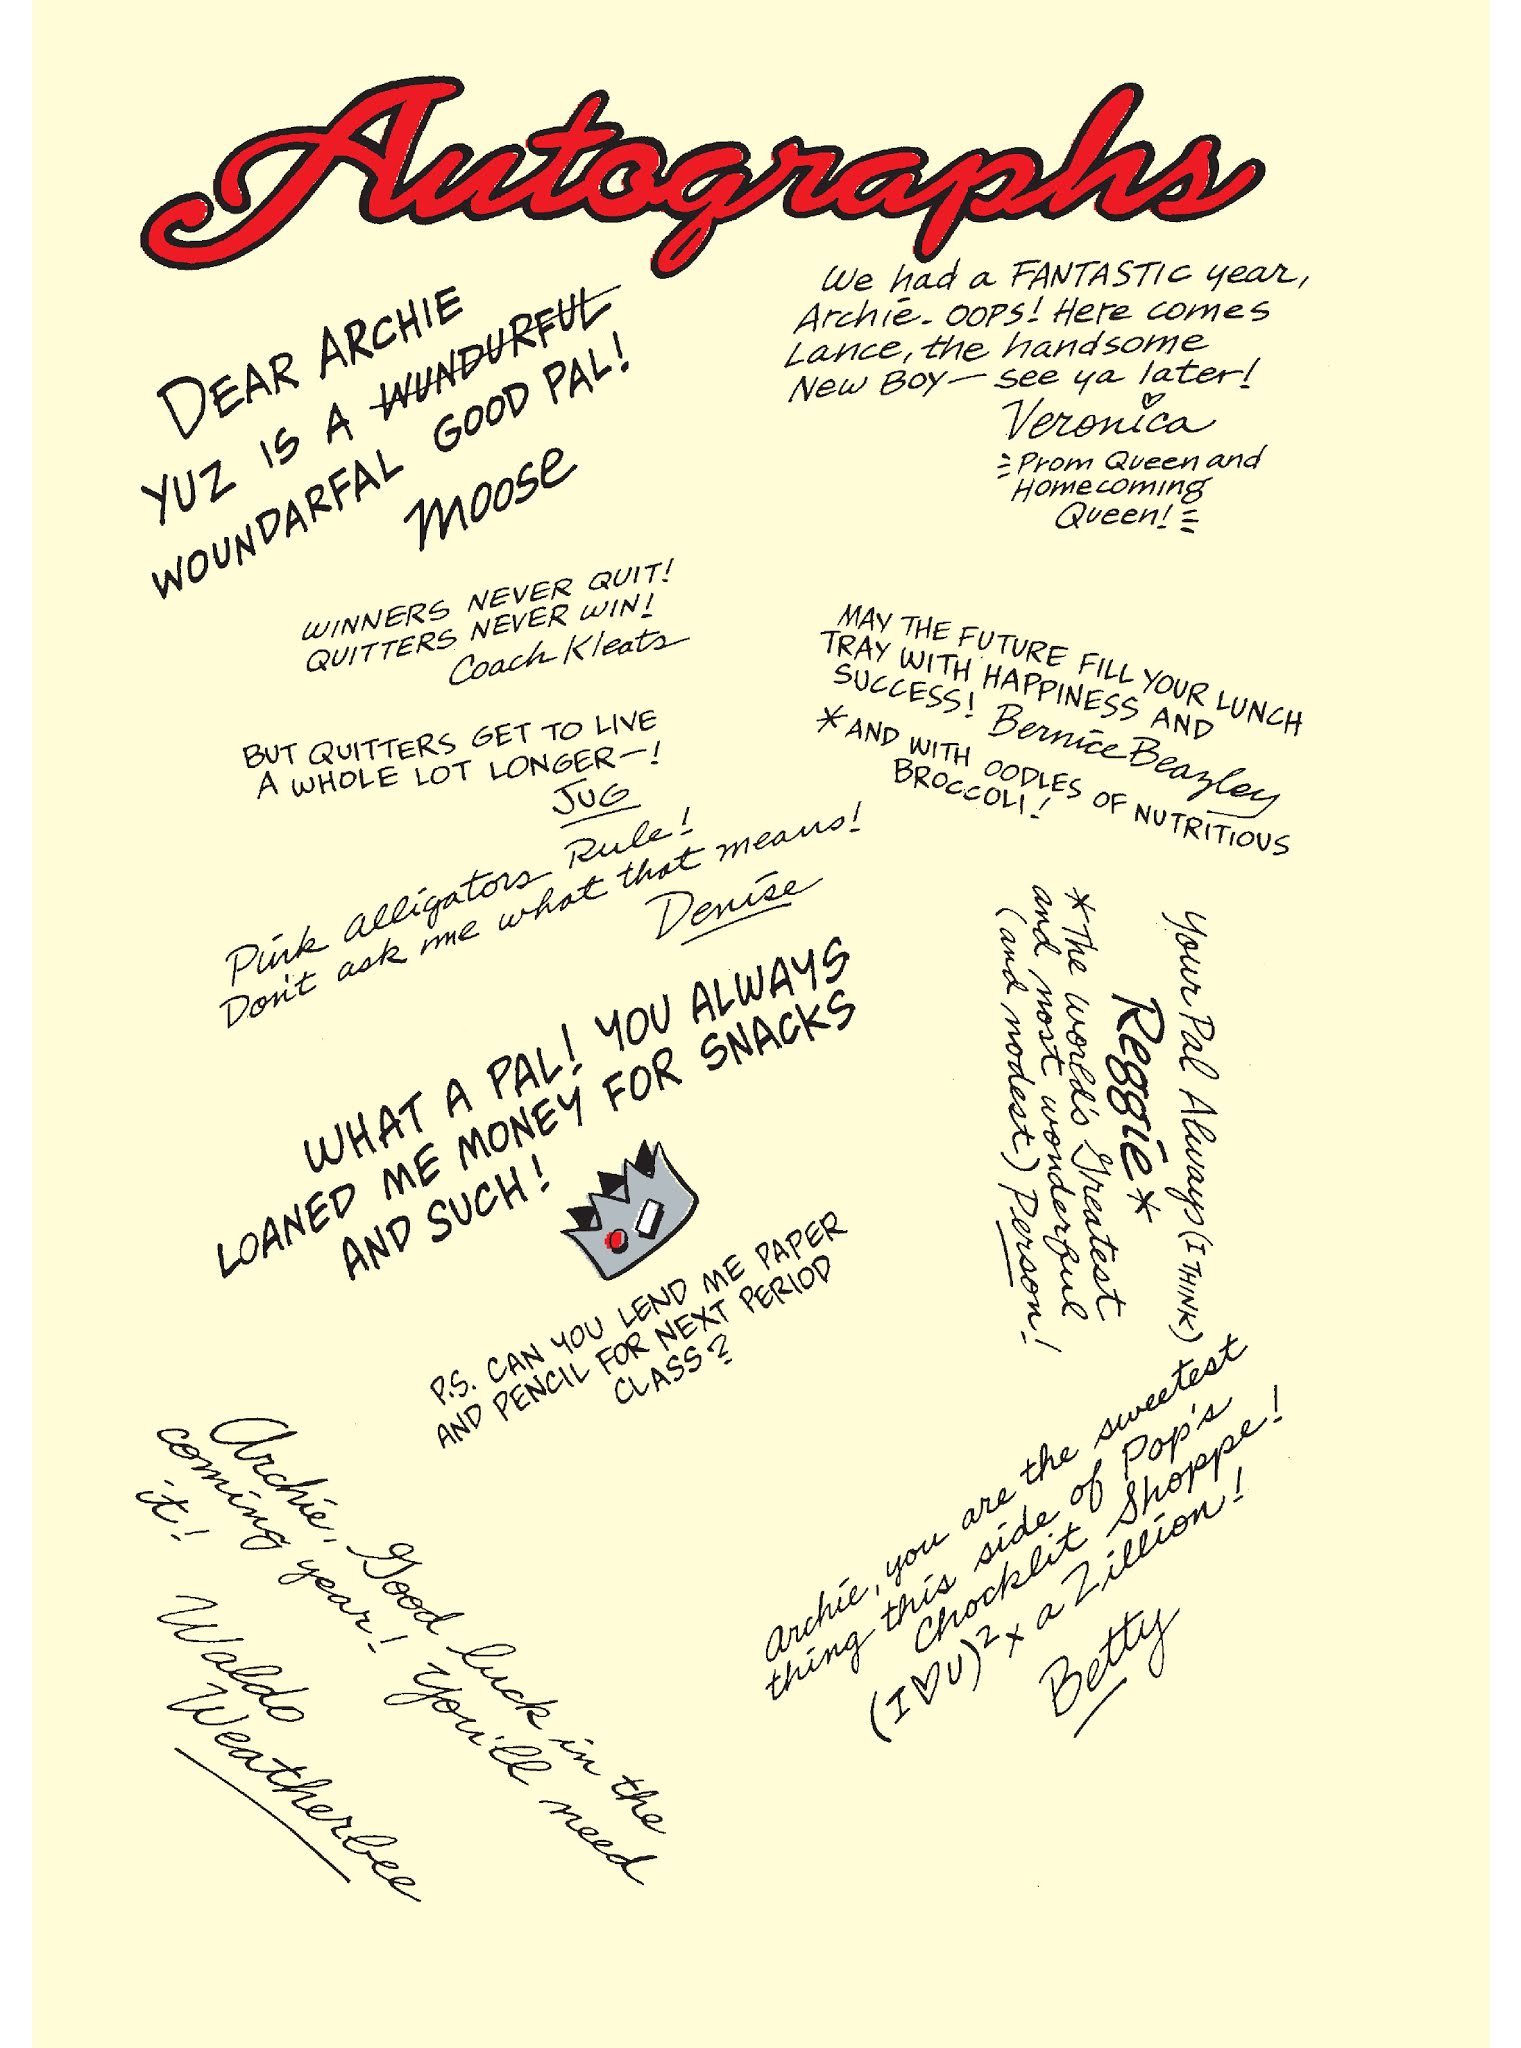 Autographs
DEAR ARCHIE
YUZ IS A WUNDURFUL
WOUNDARFAL GOOD PAL!
MOOSE
We had a FANTASTIC year,
Archie. OOPS! Here comes
Lance, the handsome
New Boy— see ya later!
Veronica
Prom Queen and
Homecoming
Queen!
WINNERS NEVER QUIT!
QUITTERS NEVER WIN!
Coach Kleats
MAY THE FUTURE FILL YOUR LUNCH
TRAY WITH HAPPINESS AND
SUCCESS! Bernice Beazley
*AND WITH OODLES OF NUTRITIOUS
BROCCOLI!
BUT QUITTERS GET TO LIVE
A WHOLE LOT LONGER—!
JUG
Pink alligators Rule!
Don't ask me what that means!
Denise
Your Pal Always (I THINK)
Reggie*
*The World's Greatest
and most wonderful
(and modest) Person!
WHAT A PAL! YOU ALWAYS
LOANED ME MONEY FOR SNACKS
AND SUCH!
P.S. CAN YOU LEND ME PAPER
AND PENCIL FOR NEXT PERIOD
CLASS?
Archie, you are the sweetest
thing this side of Pop's
Chocklit Shoppe!
(I♡U)² x a Zillion!
Betty
Archie, Good luck in the
coming year! You'll need
it!
Waldo
Weatherbee